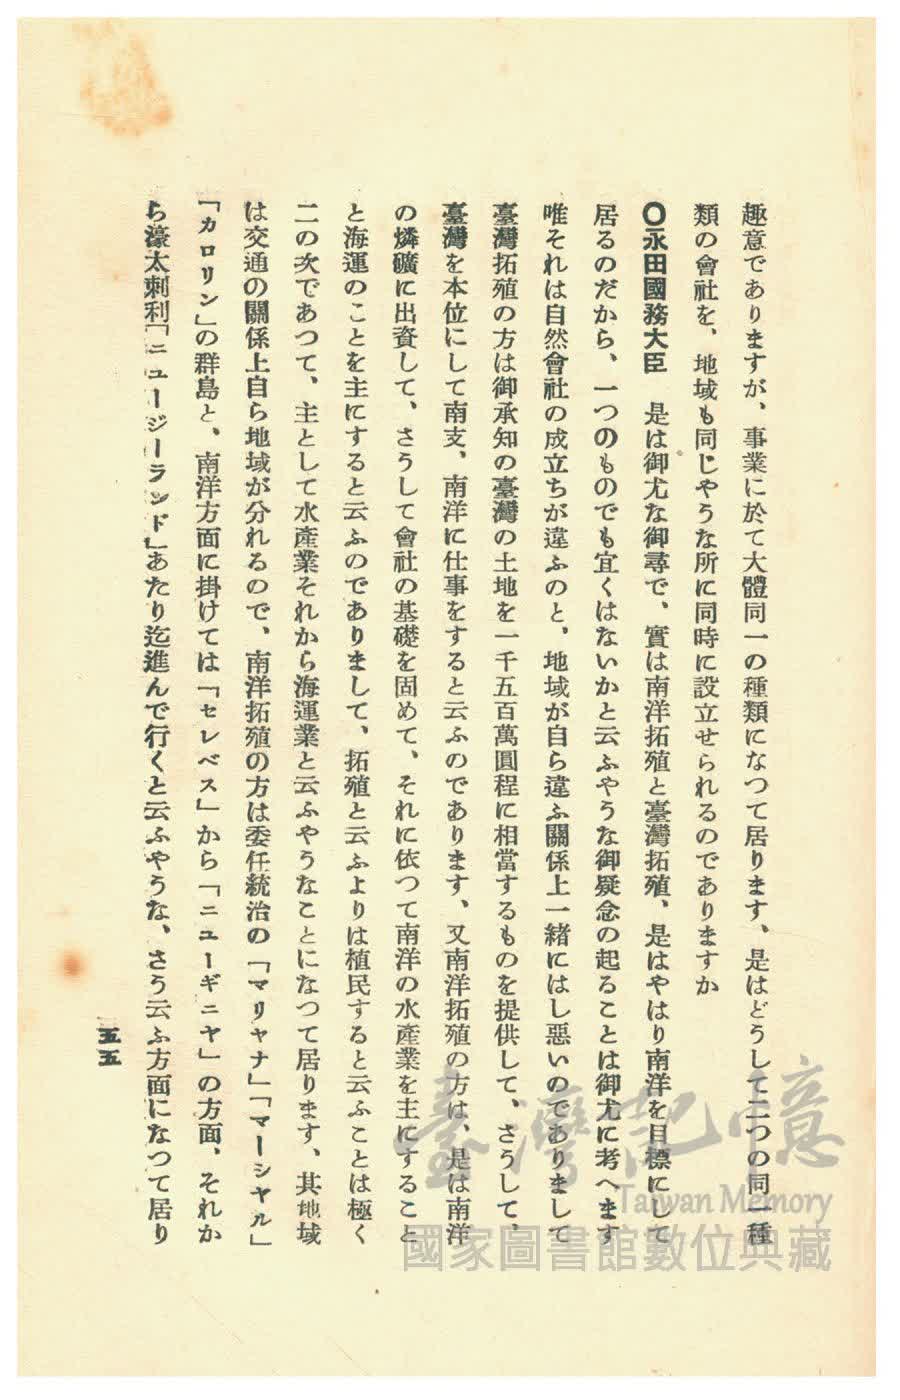 趣意でありますが、事業に於て大體同一の種類になつて居ります、是はどうして二つの同一種
類の會社を、地域も同じやうな所に同時に設立せられるのでありますか
〇永田國務大臣　是は御尤な御尋で、實は南洋拓殖と臺灣拓殖、是はやはり南洋を目標にして
居るのだから、一つのものでも宜くはないかと云ふやうな御疑念の起ることは御尤に考へます
唯それは自然會社の成立ちが違ふのと、地域が自ら違ふ關係上一緒にはし惡いのでありまして
臺灣拓殖の方は御承知の臺灣の土地を一千五百萬圓程に相當するものを提供して、さうして、
臺灣を本位にして南支、南洋に仕事をすると云ふのであります、又南洋拓殖の方は、是は南洋
の燐礦に出資して、さうして會社の基礎を固めて、それに依つて南洋の水產業を主にすること
と海運のことを主にすると云ふのでありまして、拓殖と云ふよりは植民すると云ふことは極く
二の次であつて、主として水產業それから海運業と云ふやうなことになつて居ります、其地域
は交通の關係上自ら地域が分れるので、南洋拓殖の方は委任統治の「マリヤナ」「マーシヤル」
「カロリン」の群島と、南洋方面に掛けては「セレベス」から「ニユーギニヤ」の方面、それか
ら濠太剌利「ニユージーランド」あたり迄進んで行くと云ふやうな、さう云ふ方面になつて居り
五五
臺灣記憶
Taiwan Memory
國家圖書館數位典藏